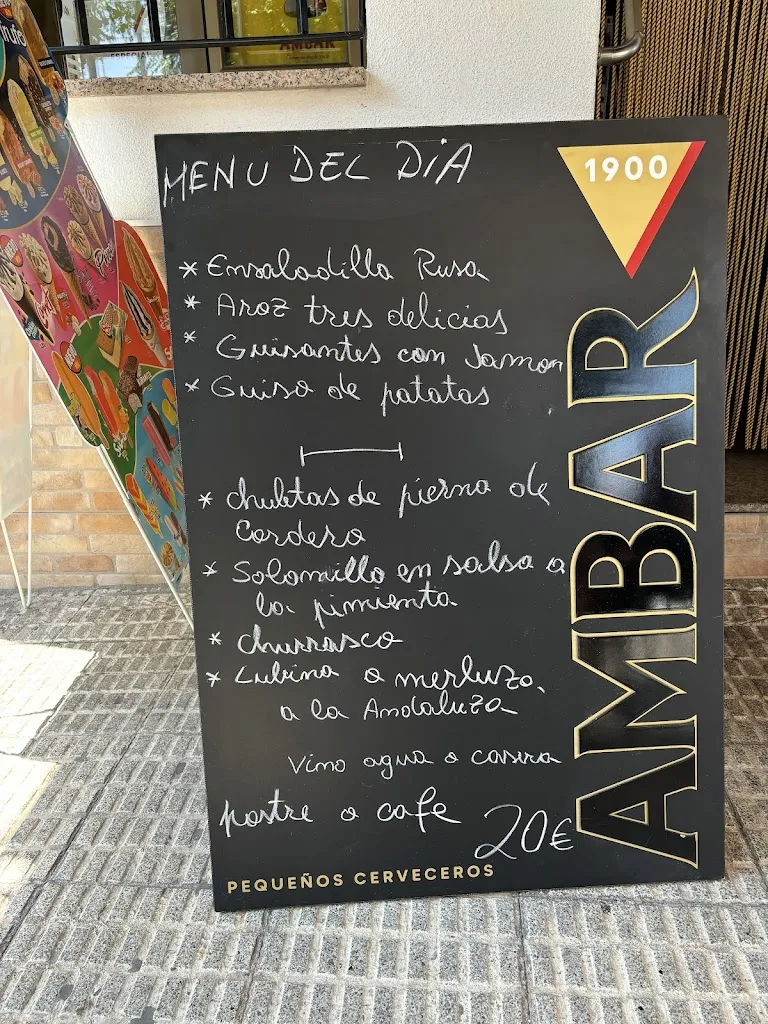 MENU DEL DiA
* Ensaladilla Rusa
* Aroz tres delicias
* Guisantes con Jamon
* Guiso de patatas
* chuletas de pierna de
Cordero
* Solomillo en salsa a
la pimienta
* churrasco
* Lubina o merluzo,
a la Andaluza
Vino agua o casera
postre o cafe 20€
1900
AMBAR
PEQUEÑOS CERVECEROS